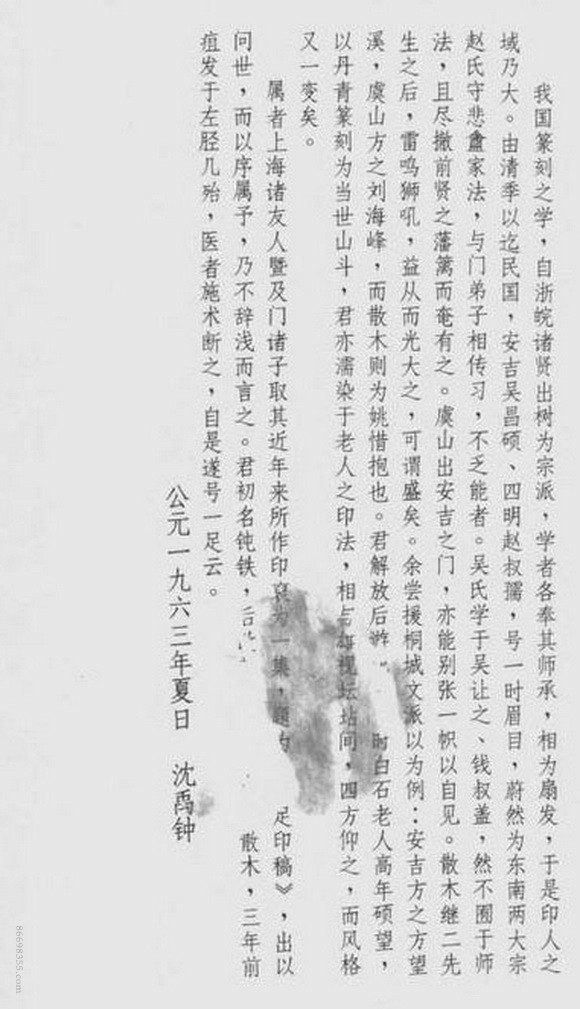 我国篆刻之学，自浙皖诸贤出树为宗派，学者各奉其师承，相为扇发，于是印人之
域乃大。由清季以迄民国，安吉吴昌硕、四明赵叔孺，号一时眉目，蔚然为东南两大宗
赵氏守悲盦家法，与门弟子相传习，不乏能者。吴氏学于吴让之、钱叔盖，然不囿于师
法，且尽撤前贤之藩篱而奄有之。虞山出安吉之门，亦能别张一帜以自见。散木继二先
生之后，雷鸣狮吼，益从而光大之，可谓盛矣。余尝援桐城文派以为例：安吉方之方望
溪，虞山方之刘海峰，而散木则为姚惜抱也。君解放后游 时白石老人高年硕望，
以丹青篆刻为当世山斗，君亦濡染于老人之印法，相与 视坛坫间，四方仰之，而风格
又一变矣。
属者上海诸友人暨及门诸子取其近年来所作印裒为一集， 足印稿》，出以
问世，而以序属予，乃不辞浅而言之。君初名钝铁，后 散木，三年前
疽发于左胫几殆，医者施术断之，自是遂号一足云。
公元一九六三年夏日 沈禹钟
86698355.com